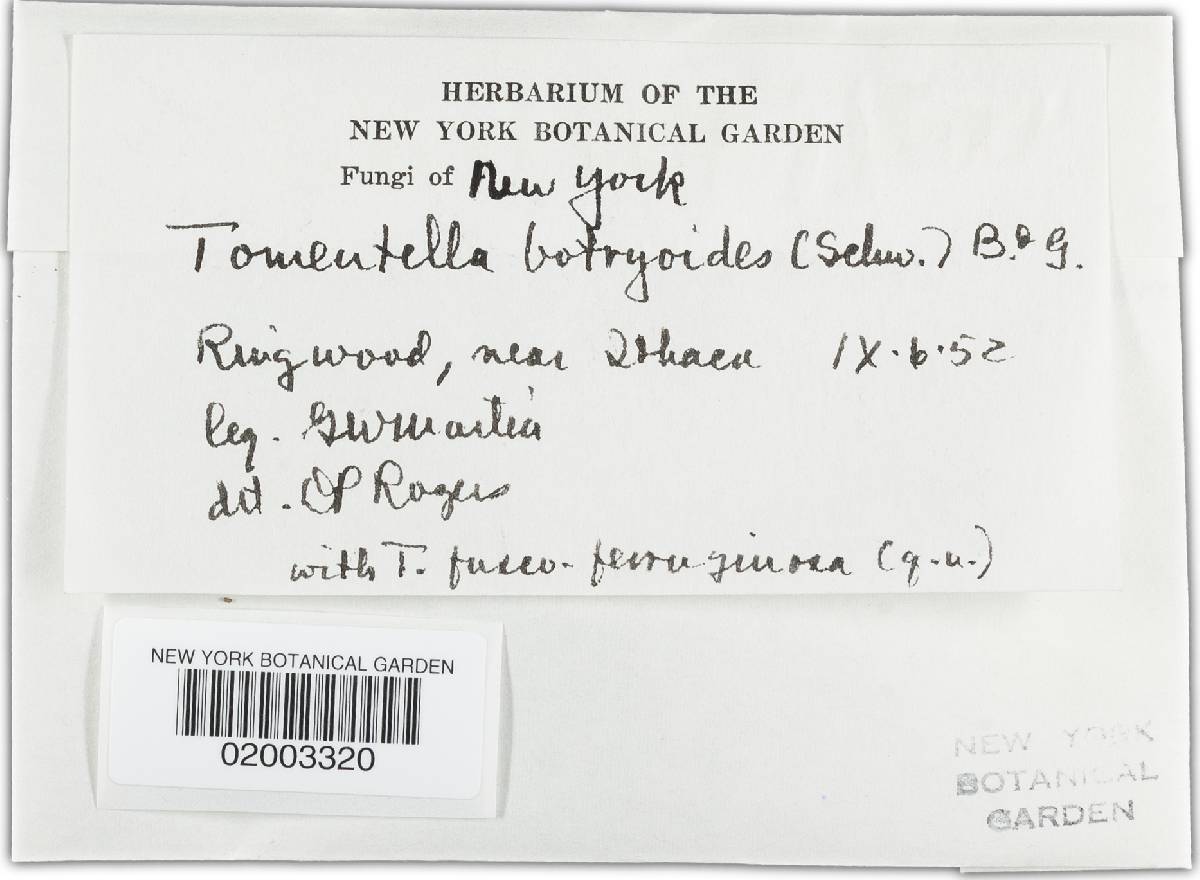 HERBARIUM OF THE
NEW YORK BOTANICAL GARDEN
Fungi of New York
Tomentella botryoides (Schw.) B. & G.
Ringwood, near Ithaca IX·6·52
leg. GWMartin
det. DP Rogers
with T. fusco-ferruginosa (q.u.)
NEW YORK BOTANICAL GARDEN
02003320
NEW YORK
BOTANICAL
GARDEN